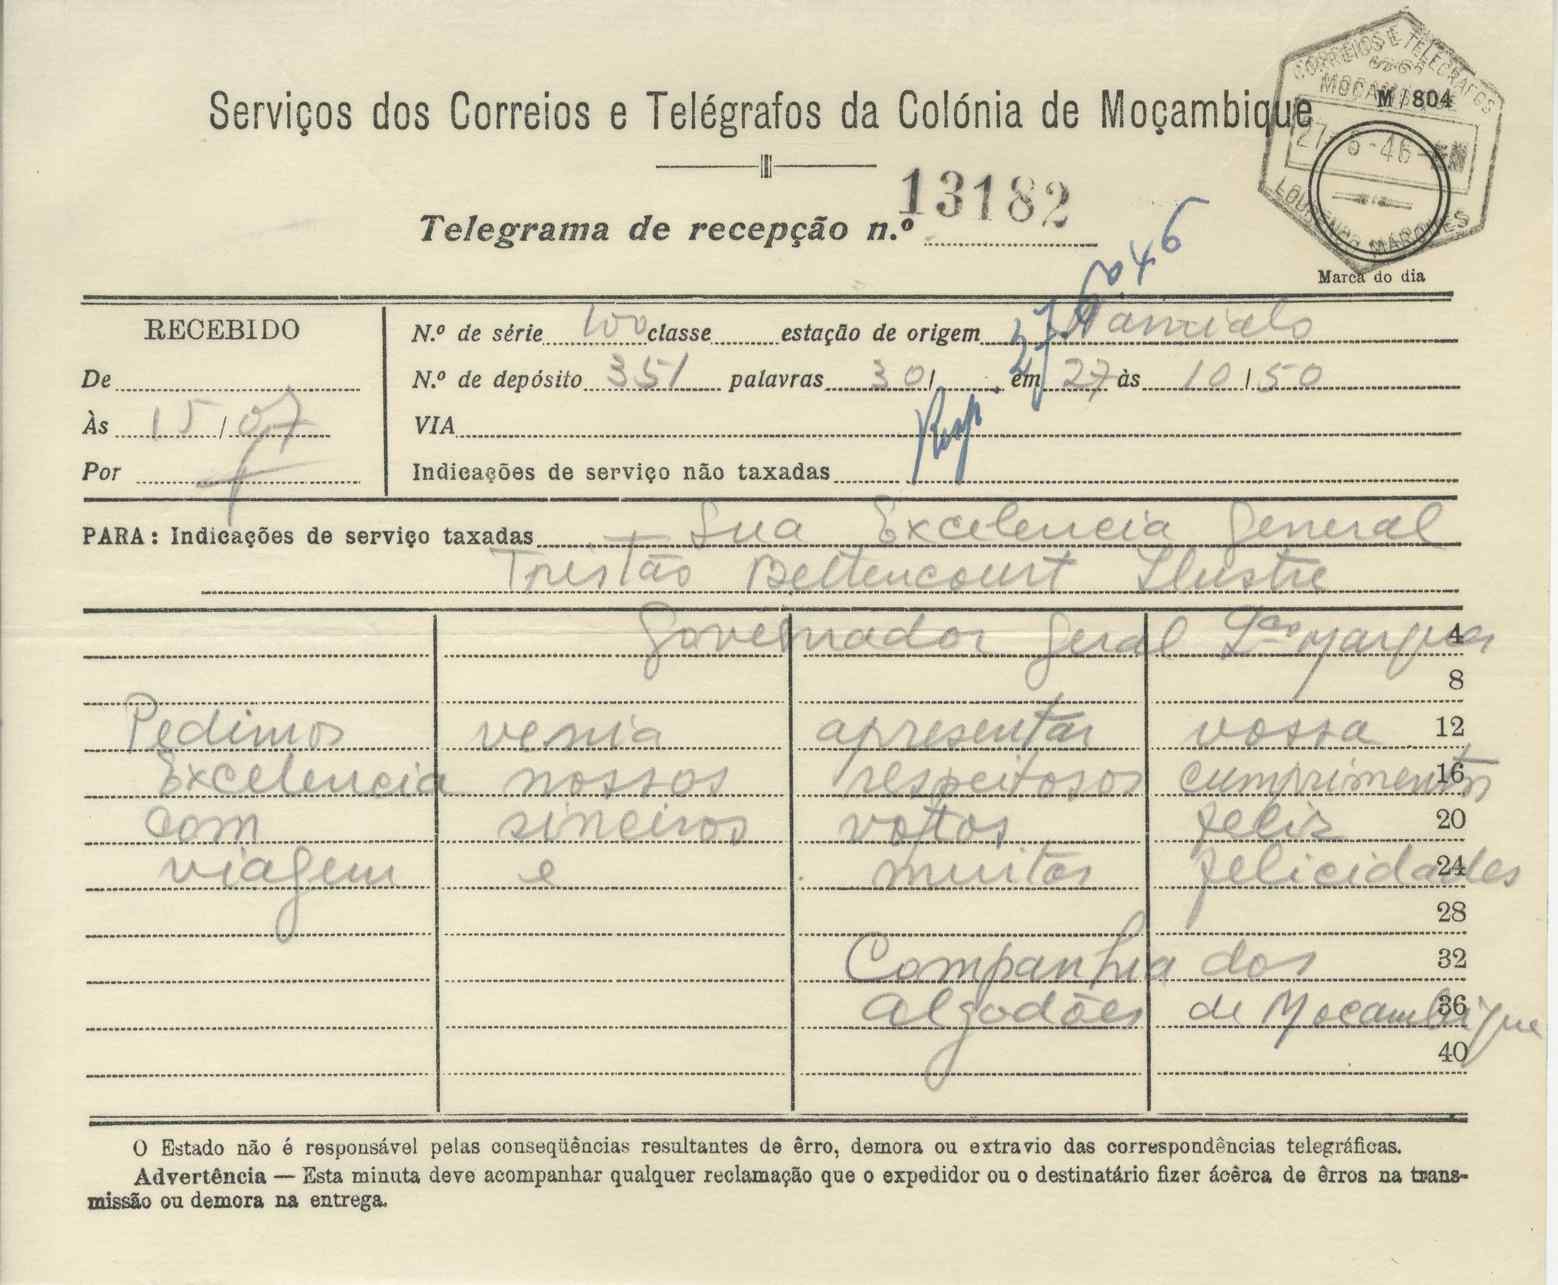 CORREIOS E TELEGRAFOS
MOÇAMBIQUE
M / 804
27 - 6 - 46
LOURENÇO MARQUES
Marca do dia
Serviços dos Correios e Telégrafos da Colónia de Moçambique
Telegrama de recepção n.º 13182
27 6º 46
Resp.
RECEBIDO
De
Às 15 / 07
Por
N.º de série 100 classe estação de origem Namialo
N.º de depósito 351 palavras 30 / em 27 às 10 / 50
VIA
Indicações de serviço não taxadas
PARA: Indicações de serviço taxadas Sua Excelencia General
Tristão Bettencourt Ilustre
Governador Geral Lço Marques 4
8
Pedimos venia apresentar vossa 12
Excelencia nossos respeitosos cumprimentos 16
com sinceros votos feliz 20
viagem e muitas felicidades 24
28
Companhia dos 32
Algodões de Mocambique 36
40
O Estado não é responsável pelas conseqüências resultantes de êrro, demora ou extravio das correspondências telegráficas.
Advertência — Esta minuta deve acompanhar qualquer reclamação que o expedidor ou o destinatário fizer ácêrca de êrros na trans-
missão ou demora na entrega.